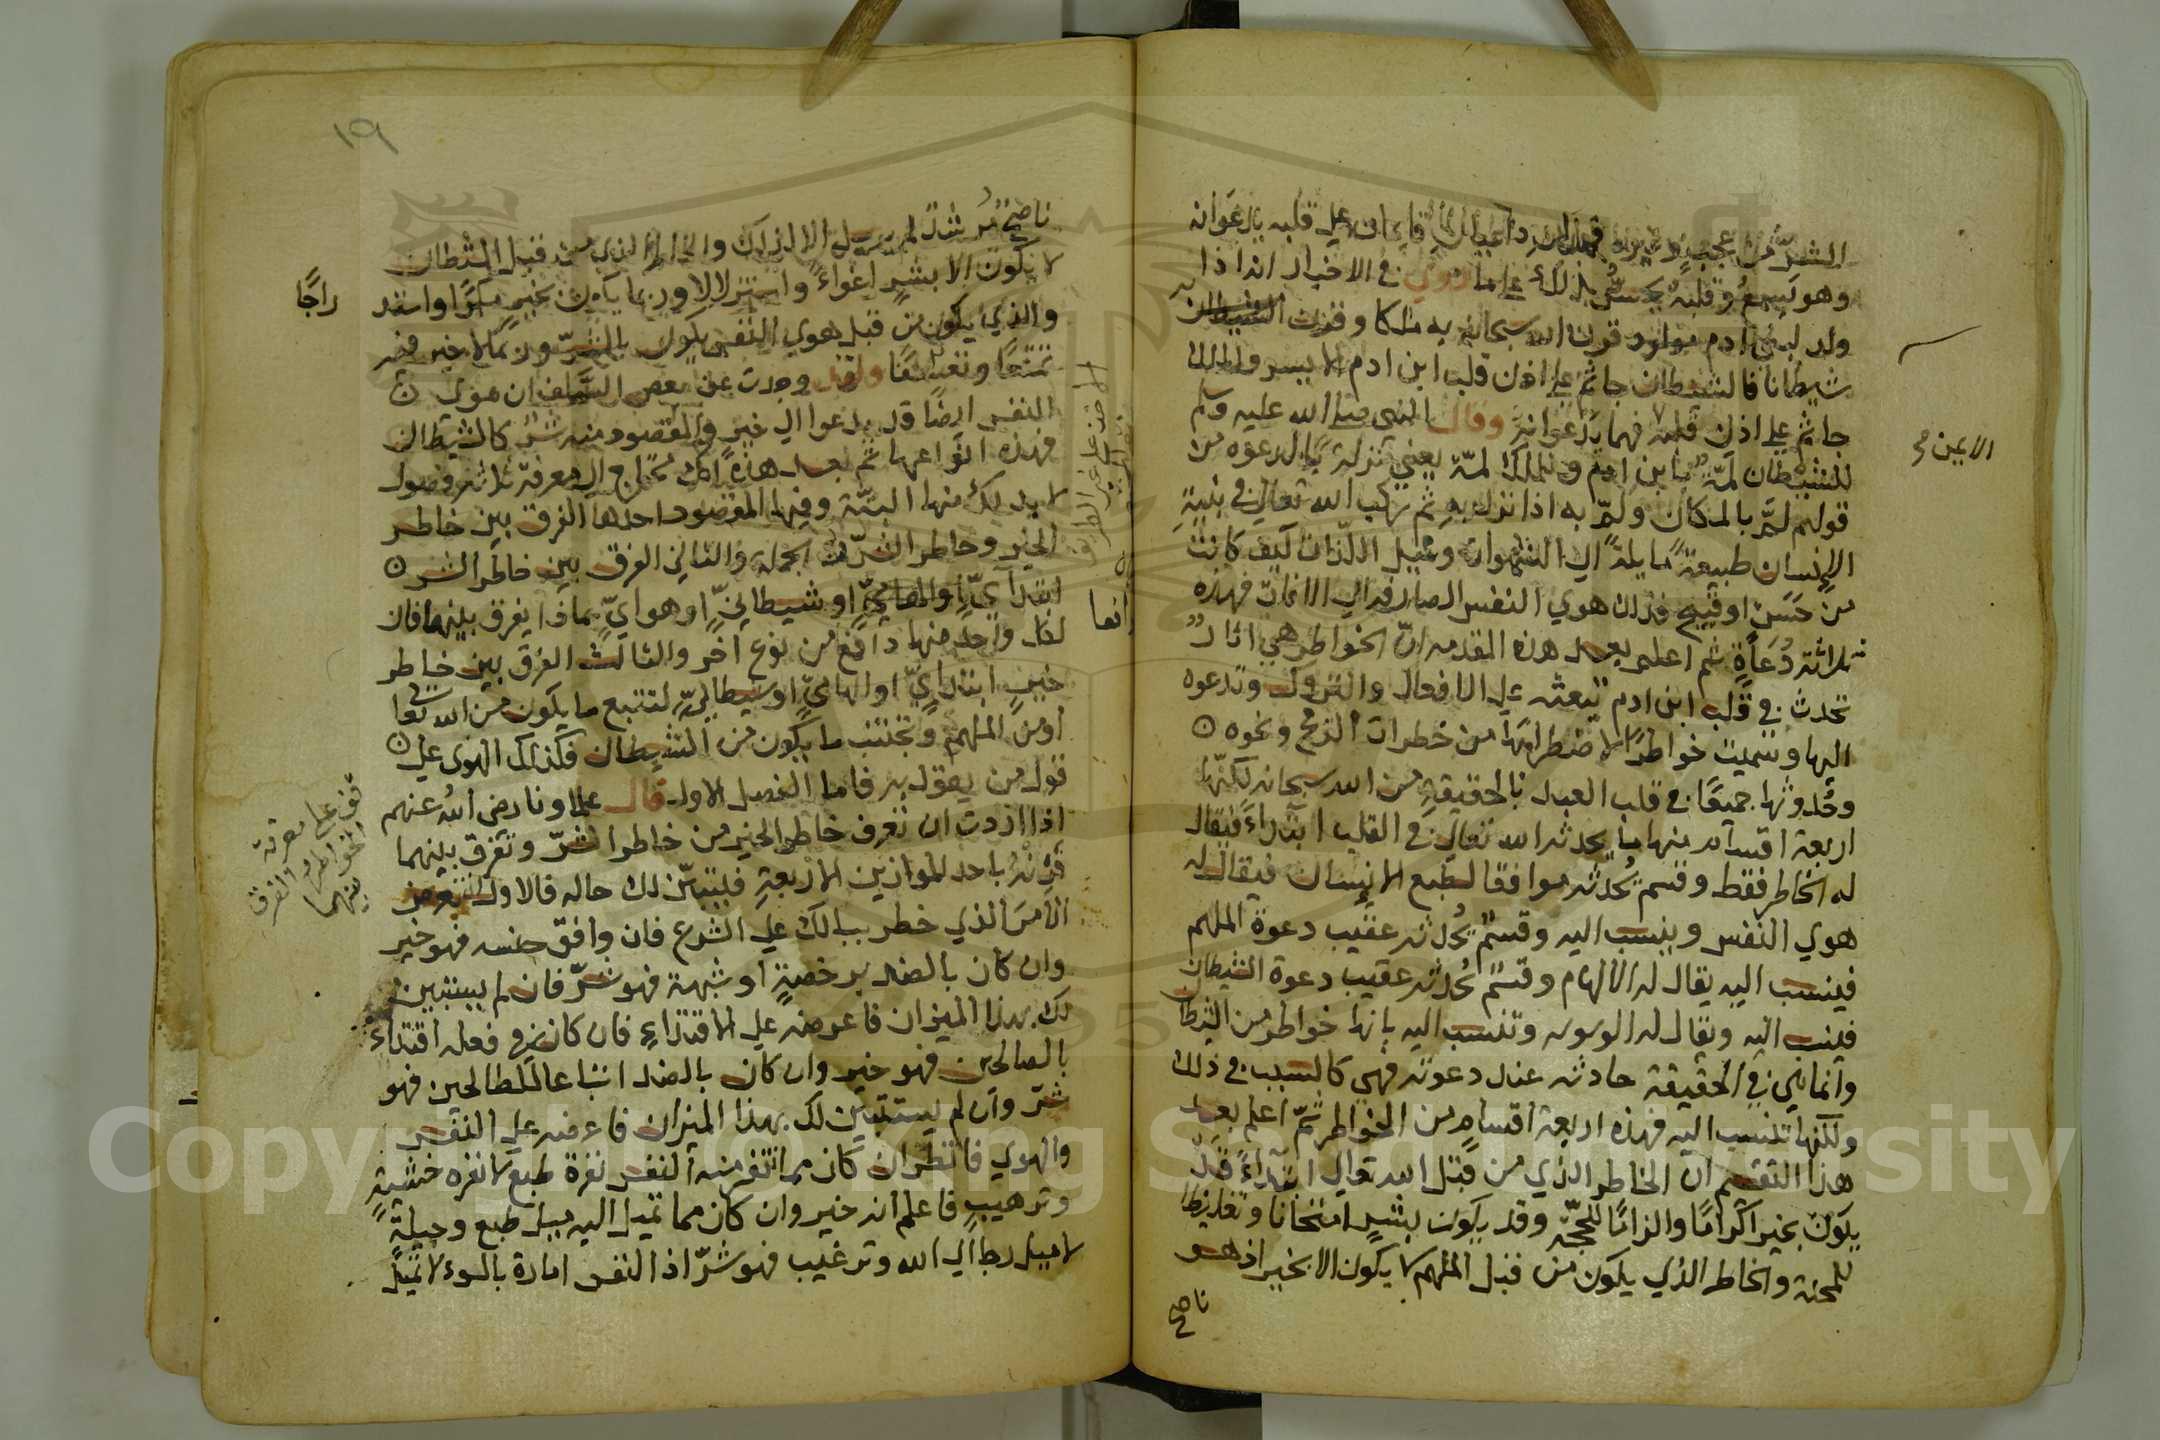 الشر من عجب وغيره فهذان داعيان قايمان على قلبه يدعوانه
وهو يسمع وقلبه يحس بذلك على ما روي في الاخبار انه اذا
ولد لبني ادم مولود قرن الله سبحانه به ملكا وقرن الشيطان به
شيطانا فالشيطان جاثم على اذن قلب ابن ادم الايسر والملك
جاثم على اذن قلبه فهما يدعوانه وقال النبي صلى الله عليه وسلم
الايمن صح
للشيطان لمة بابن ادم وللملك لمة يعني نزلة بالدعوه من
قولهم لم بالمكان ولم به اذا نزل به ثم ركب الله تعالى في بنية
الانسان طبيعة مايلة الي الشهوات ونيل اللذات كيف كانت
من حسن او قبيح فذلك هوي النفس الصارفه الي الافات فهذه
ثلاثة دعاة ثم اعلم بعد هذه المقدمه ان الخواطر هي اثار
تحدث في قلب ابن ادم تبعثه على الافعال والتروك وتدعوه
اليها وسميت خواطرا لاضطرابها من خطرات الريح ونحوه
وحدوثها جميعا في قلب العبد بالحقيقة من الله سبحانه لكنها
اربعة اقسام منها ما يحدثه الله تعالى في القلب ابتداء فيقال
له الخاطر فقط وقسم يحدثه موافقا لطبع الانسان فيقال له
هوي النفس وينسب اليه وقسم يحدثه عقيب دعوة الملهم
فينسب اليه يقال له الالهام وقسم يحدثه عقيب دعوة الشيطان
فينسب اليه ويقال له الوسوسه وتنسب اليه بانها خواطر من الشيطان
وانما هي في الحقيقة حادثه عند دعوته فهي كالسبب في ذلك
ولكنها تنسب اليه فهذه اربعة اقسام من الخواطر ثم اعلم بعد
هذا التقسيم ان الخاطر الذي من قبل الله تعالى ابتداء قد
يكون بخير اكراما والزاما للحجة وقد يكون بشر امتحانا وتغليظا
للمحنة والخاطر الذي يكون من قبل الملهم لا يكون الا بخير اذ هو
ناصح
١٩
ناصح مرشد لم يرسل الا لذلك والخاطر الذي من قبل الشيطان
لا يكون الا بشر اغواء واستزلالا وربما يكون بخير مكرا واستد
راجا
والذي يكون من قبل هوي النفس يكون بالشر وبما لا خير فيه
تمنعا وتعسفا ولقد وجدت عن بعض السلف ان هوى
النفس ايضا قد يدعوا الي خير والمقصود منه شر كالشيطان
فهذه انواعها ثم بعد هذا انك محتاج الى معرفة ثلاثه فصول
لا بد لك منها البتة وفيها المقصود احدها الفرق بين خاطر
الخير وخاطر الشر في الجملة والثاني الفرق بين خاطر الشر
ابتدائي او شيطاني او هوائي بماذا يفرق بينهما فان
لكل واحد منها دافع من نوع اخر والثالث الفرق بين خاطر
خير ابتدائي او الهامي او شيطاني لتتبع ما يكون من الله تعالى
او من الملهم وتجتنب ما يكون من الشيطان فكذلك الهوى على
قول من يقول به فاما الفصل الاول قال علماونا رضي الله عنهم
اذا اردت ان تعرف خاطر الخير من خاطر الشر وتفرق بينهما
قف على معرفة الخواطر والفرق بينهما
فزنه باحد الموازين الاربعة فيتبين لك حاله فالاول تعرض
الامر الذي خطر ببالك على الشرع فان وافق جنسه فهو خير
وان كان بالضد برخصة او شبهة فهو شر فان لم يستبين
لك بهذا الميزان فاعرضه على الاقتداء فان كان في فعله اقتداء
بالصالحين فهو خير وان كان بالضد اتباعا للطالحين فهو
شر وان لم يستبين لك بهذا الميزان فاعرضه على النفس
والهوي فانظر ان كان مما تنفر منه النفس نفرة طبع لا نفره خشية
وترهيب فاعلم انه خير وان كان مما تميل اليه ميل طبع وجبلة
لا ميل رجا الى الله وترغيب فهو شر اذ النفس امارة بالسوء لا تميل
Copyright © King Saud University